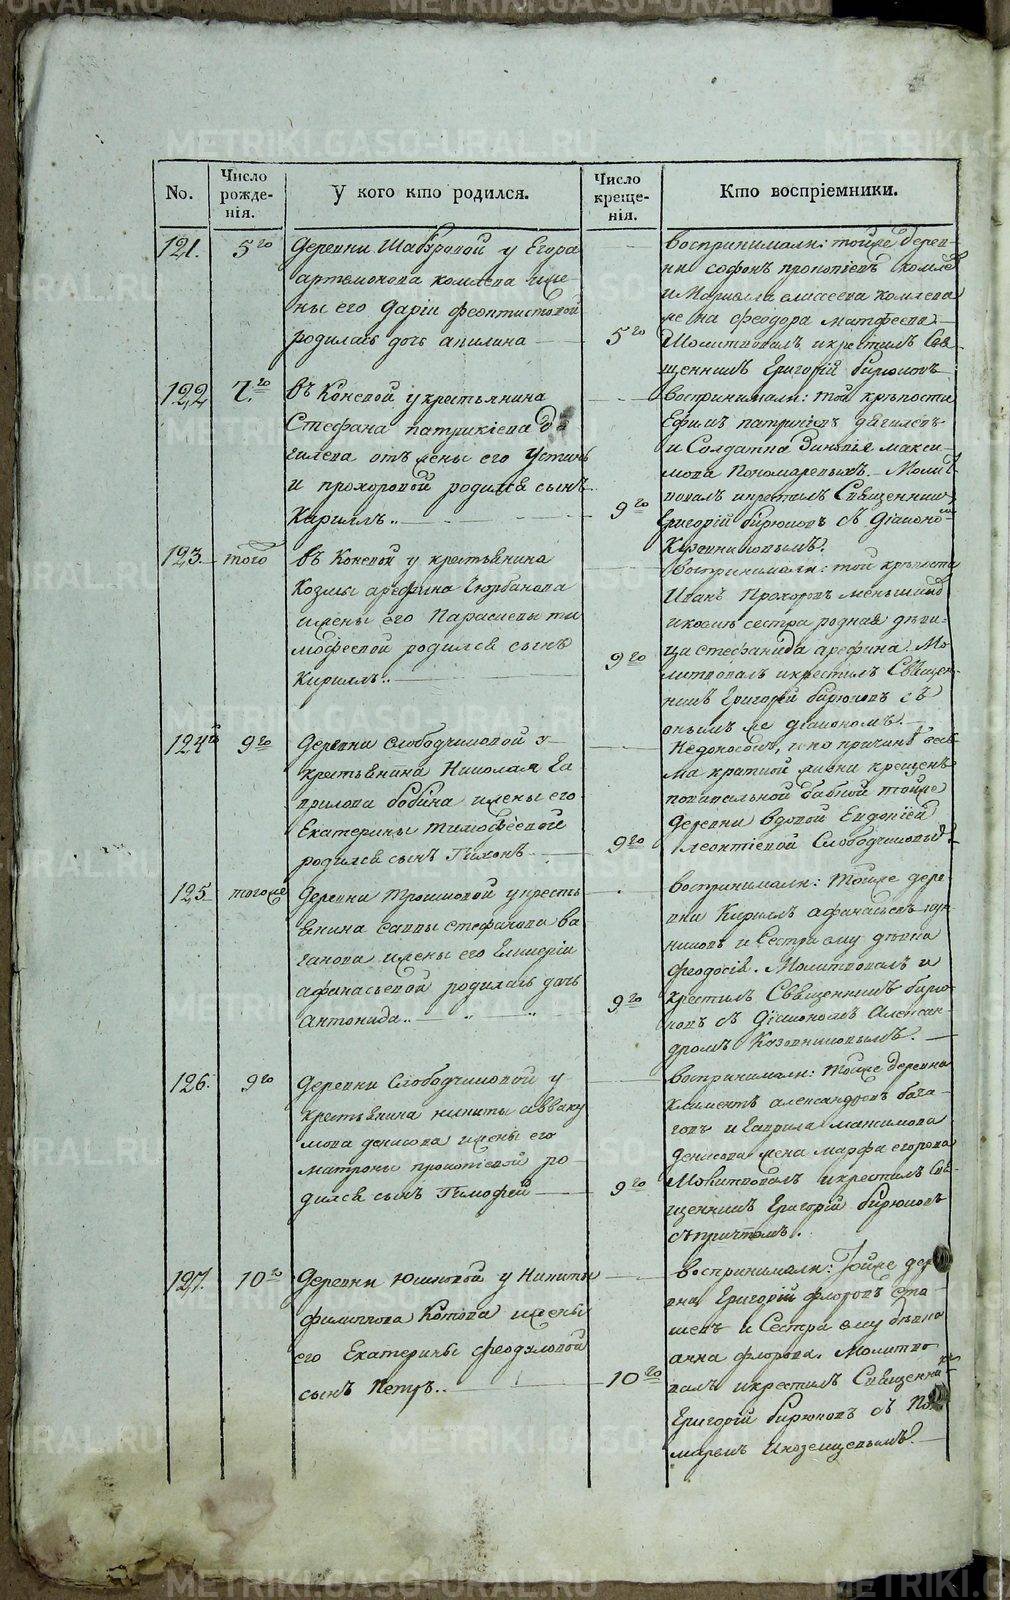 METRIKI.GASO-URAL.RU
No.
Число рожде-нія.
У кого кто родился.
Число креще-нія.
Кто воспріемники.
121.
5го
Деревни Шабуровой у Егора
артемонова комлева и же-
ны его Даріи феоктистовой
родилась дочь апилина
5го
воспринимали: тойже дерев-
ни софонъ прокопіевъ комле
Молитвовалъ и крестилъ Свя-
щенникъ Григорій бирюковъ
122
7го
въ Коневой у крестьянина
Стефана патрикіева дя
гилева отъ жены его Устинь
и прохоровой родился сынъ
Кириллъ..
9го
воспринимали: той крѣпости
Ефимъ патрикіевъ дягилевъ
и Солдатка Зиновія макси-
мова Пономаревыхъ. Молит
вовалъ и крестилъ Священник
Григорій бирюковъ съ діаконо
123
того
въ Коневой у крестьянина
Козмы арефина Тюрбанова
и жены его Параскевы ти
мофеевой родился сынъ
Кириллъ..
9го
воспринимали: той крѣпости
Иванъ Прохоровъ меньшико
сестра родная дѣви-
ца стефанида арефина. Мо-
литвовалъ и крестилъ Священ-
никъ Григорій бирюковъ съ
онымъ же діакономъ.
124
9го
Деревни Слободчиковой у
крестьянина Николая Га
врилова бобина и жены его
Екатерины тимофѣевой
родился сынъ Тихонъ
9го
Недоносокъ, и по причинѣ весь
ма краткой жизни крещенъ
повивальной бабкой тойже
Деревни вдовой Евдокіей
леонтіевой Слободчиковы
125
тогоже
Деревни Трошковой у кресть
янина саввы стефанова ва
ганова и жены его Гликеріи
афанасьевой родилась дочь
Антонида..
9го
воспринимали: Тойже дере
вни Кириллъ афанасьевъ
и Сестра ему дѣвка
феодосія. Молитвовалъ и
крестилъ Священникъ бирю-
ковъ съ Діакономъ Алексан-
дромъ
126.
9го
Деревни Слободчиковой у
крестьянина никиты авваку
мова денисова и жены его
матроны прокопіевой ро
дился сынъ Тимофей
9го
воспринимали: Тойже деревни
Климентъ александровъ
и Гаврила максимова
Денисова жена марфа егорова
Молитвовалъ и крестилъ Свя-
щенникъ Григорій бирюковъ
съ причтомъ.
127.
10го
Деревни Юшковой у Никиты
филиппова Котова и жены
его Екатерины феодуловой
сынъ Петръ..
10го
воспринимали: Тойже дере
вни Григорій флоровъ
и Сестра ему дѣвка
анна флорова. Молитво
валъ и крестилъ Священник
Григорій бирюковъ съ По
маремъ Иноземцевымъ.